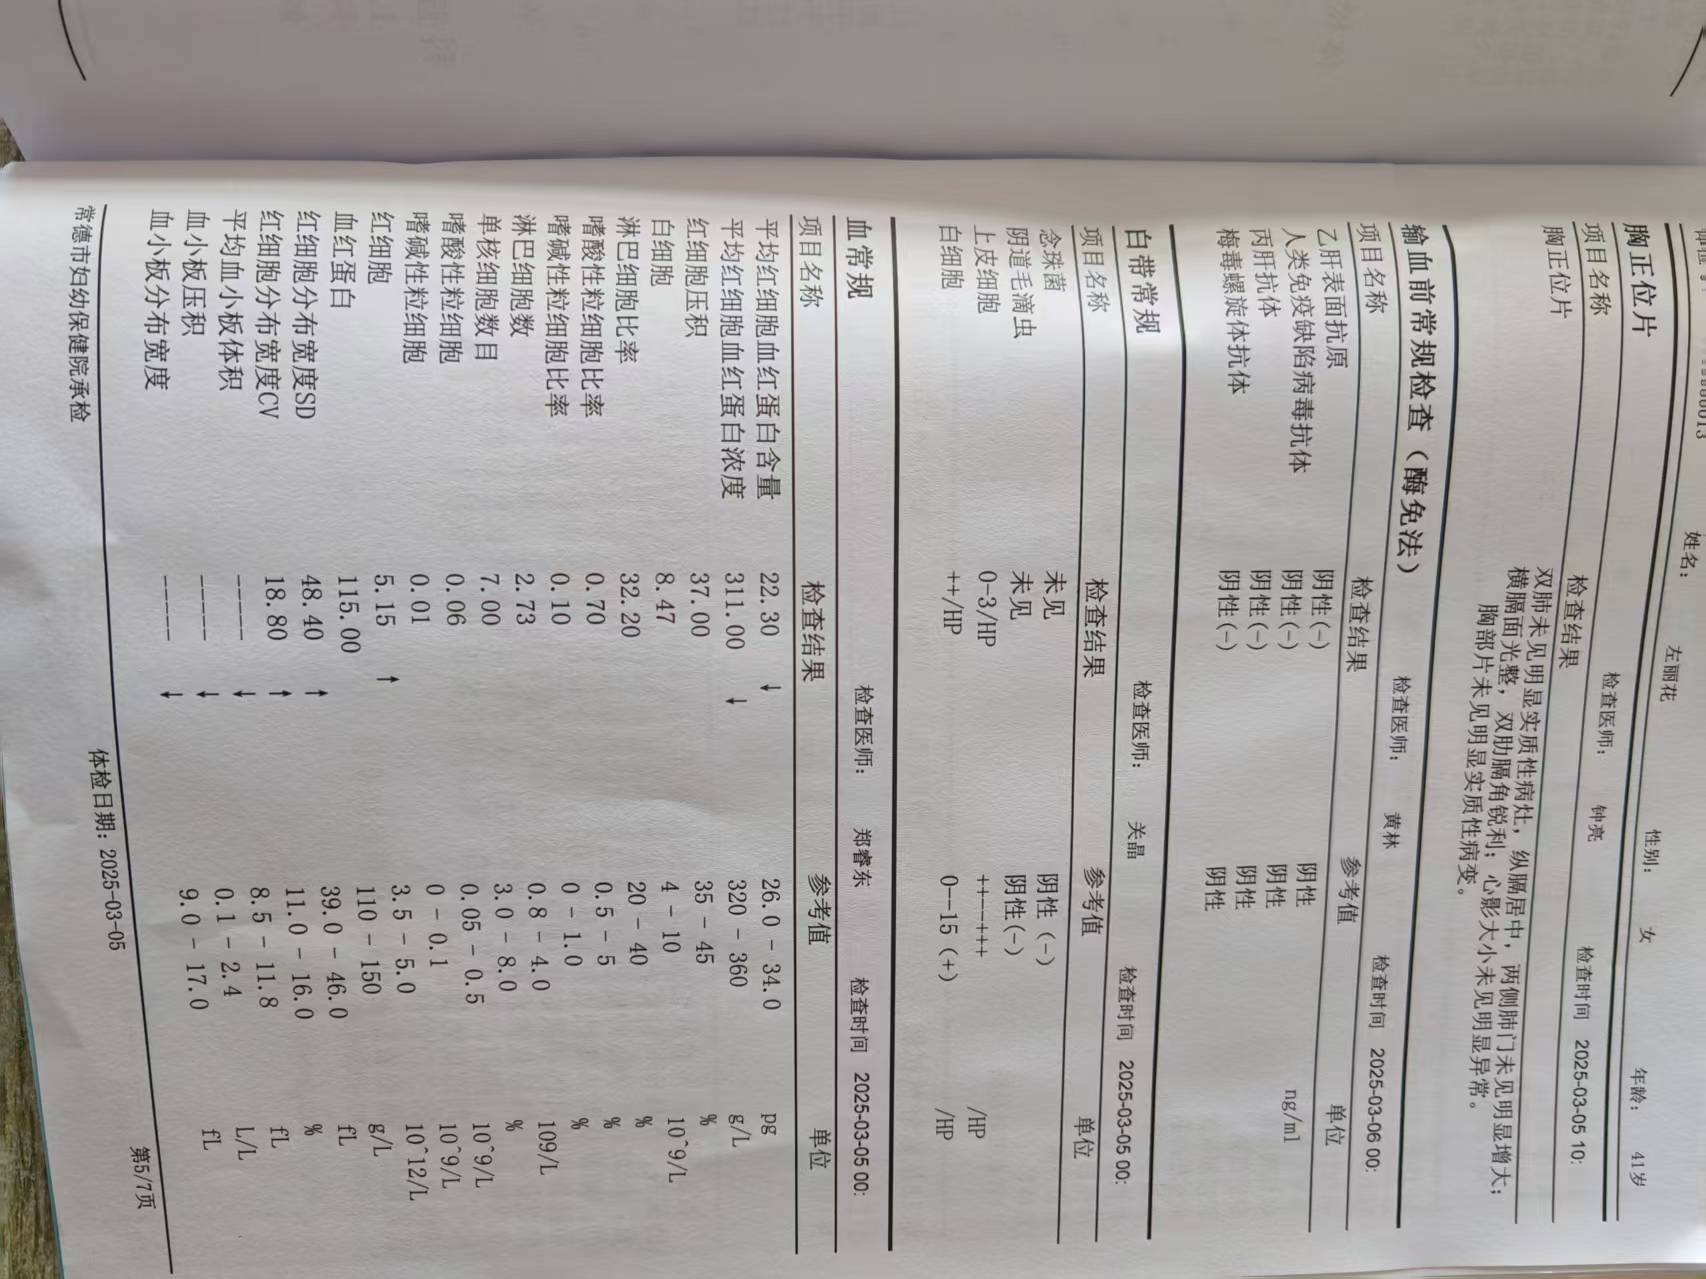 姓名: 左丽花 性别: 女 年龄: 41岁
胸正位片 检查医师: 钟亮 检查时间 2025-03-05 10:
项目名称 检查结果
胸正位片 双肺未见明显实质性病灶，纵膈居中，两侧肺门未见明显增大；
横膈面光整，双肋膈角锐利；心影大小未见明显异常。
胸部片未见明显实质性病变。
输血前常规检查（酶免法） 检查医师: 黄林 检查时间 2025-03-06 00:
项目名称 检查结果 参考值 单位
乙肝表面抗原 阴性(-) 阴性 ng/ml
人类免疫缺陷病毒抗体 阴性(-) 阴性
丙肝抗体 阴性(-) 阴性
梅毒螺旋体抗体 阴性(-) 阴性
白带常规 检查医师: 关晶 检查时间 2025-03-05 00:
项目名称 检查结果 参考值 单位
念珠菌 未见 阴性 (-)
阴道毛滴虫 未见 阴性(-)
上皮细胞 0-3/HP ++--+++ /HP
白细胞 ++/HP 0--15 (+) /HP
血常规 检查医师: 郑睿东 检查时间 2025-03-05 00:
项目名称 检查结果 参考值 单位
平均红细胞血红蛋白含量 22.30 ↓ 26.0 - 34.0 pg
平均红细胞血红蛋白浓度 311.00 ↓ 320 - 360 g/L
红细胞压积 37.00 35 - 45 %
白细胞 8.47 4 - 10 10^9/L
淋巴细胞比率 32.20 20 - 40 %
嗜酸性粒细胞比率 0.70 0.5 - 5 %
嗜碱性粒细胞比率 0.10 0 - 1.0 %
淋巴细胞数 2.73 0.8 - 4.0 109/L
单核细胞数目 7.00 3.0 - 8.0 %
嗜酸性粒细胞 0.06 0.05 - 0.5 10^9/L
嗜碱性粒细胞 0.01 0 - 0.1 10^9/L
红细胞 5.15 ↑ 3.5 - 5.0 10^12/L
血红蛋白 115.00 110 - 150 g/L
红细胞分布宽度SD 48.40 ↑ 39.0 - 46.0 fL
红细胞分布宽度CV 18.80 ↑ 11.0 - 16.0 %
平均血小板体积 ----- ↓ 8.5 - 11.8 fL
血小板压积 ----- ↓ 0.1 - 2.4 L/L
血小板分布宽度 ----- ↓ 9.0 - 17.0 fL
常德市妇幼保健院承检 体检日期: 2025-03-05 第5/7页